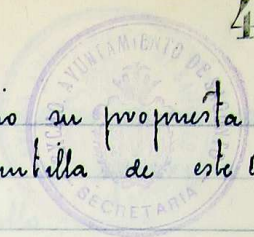 4
EXCMO. AYUNTAMIENTO DE
io su propuesta
untilla de este
SECRETARIA